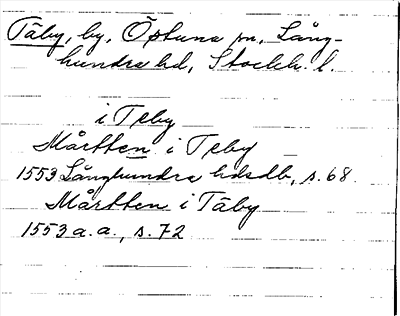 Täby, by, Östuna sn, Lång-
hundra hd, Stockh. l.
i Teby
Mårtten i Teby
1553 Långhundra hdsdb, s. 68
Mårtten i Täby
1553 a. a., s. 72